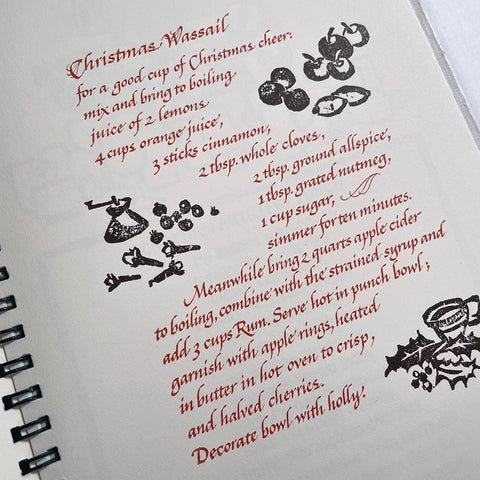 Christmas Wassail
for a good cup of Christmas cheer:
mix and bring to boiling
juice of 2 lemons
4 cups orange juice,
3 sticks cinnamon,
2 tbsp. whole cloves,
2 tbsp. ground allspice,
1 tbsp. grated nutmeg,
1 cup sugar,
simmer for ten minutes.
Meanwhile bring 2 quarts apple cider
to boiling, combine with the strained syrup and
add 3 cups Rum. Serve hot in punch bowl;
garnish with apple rings, heated
in butter in hot oven to crisp,
and halved cherries.
Decorate bowl with holly.